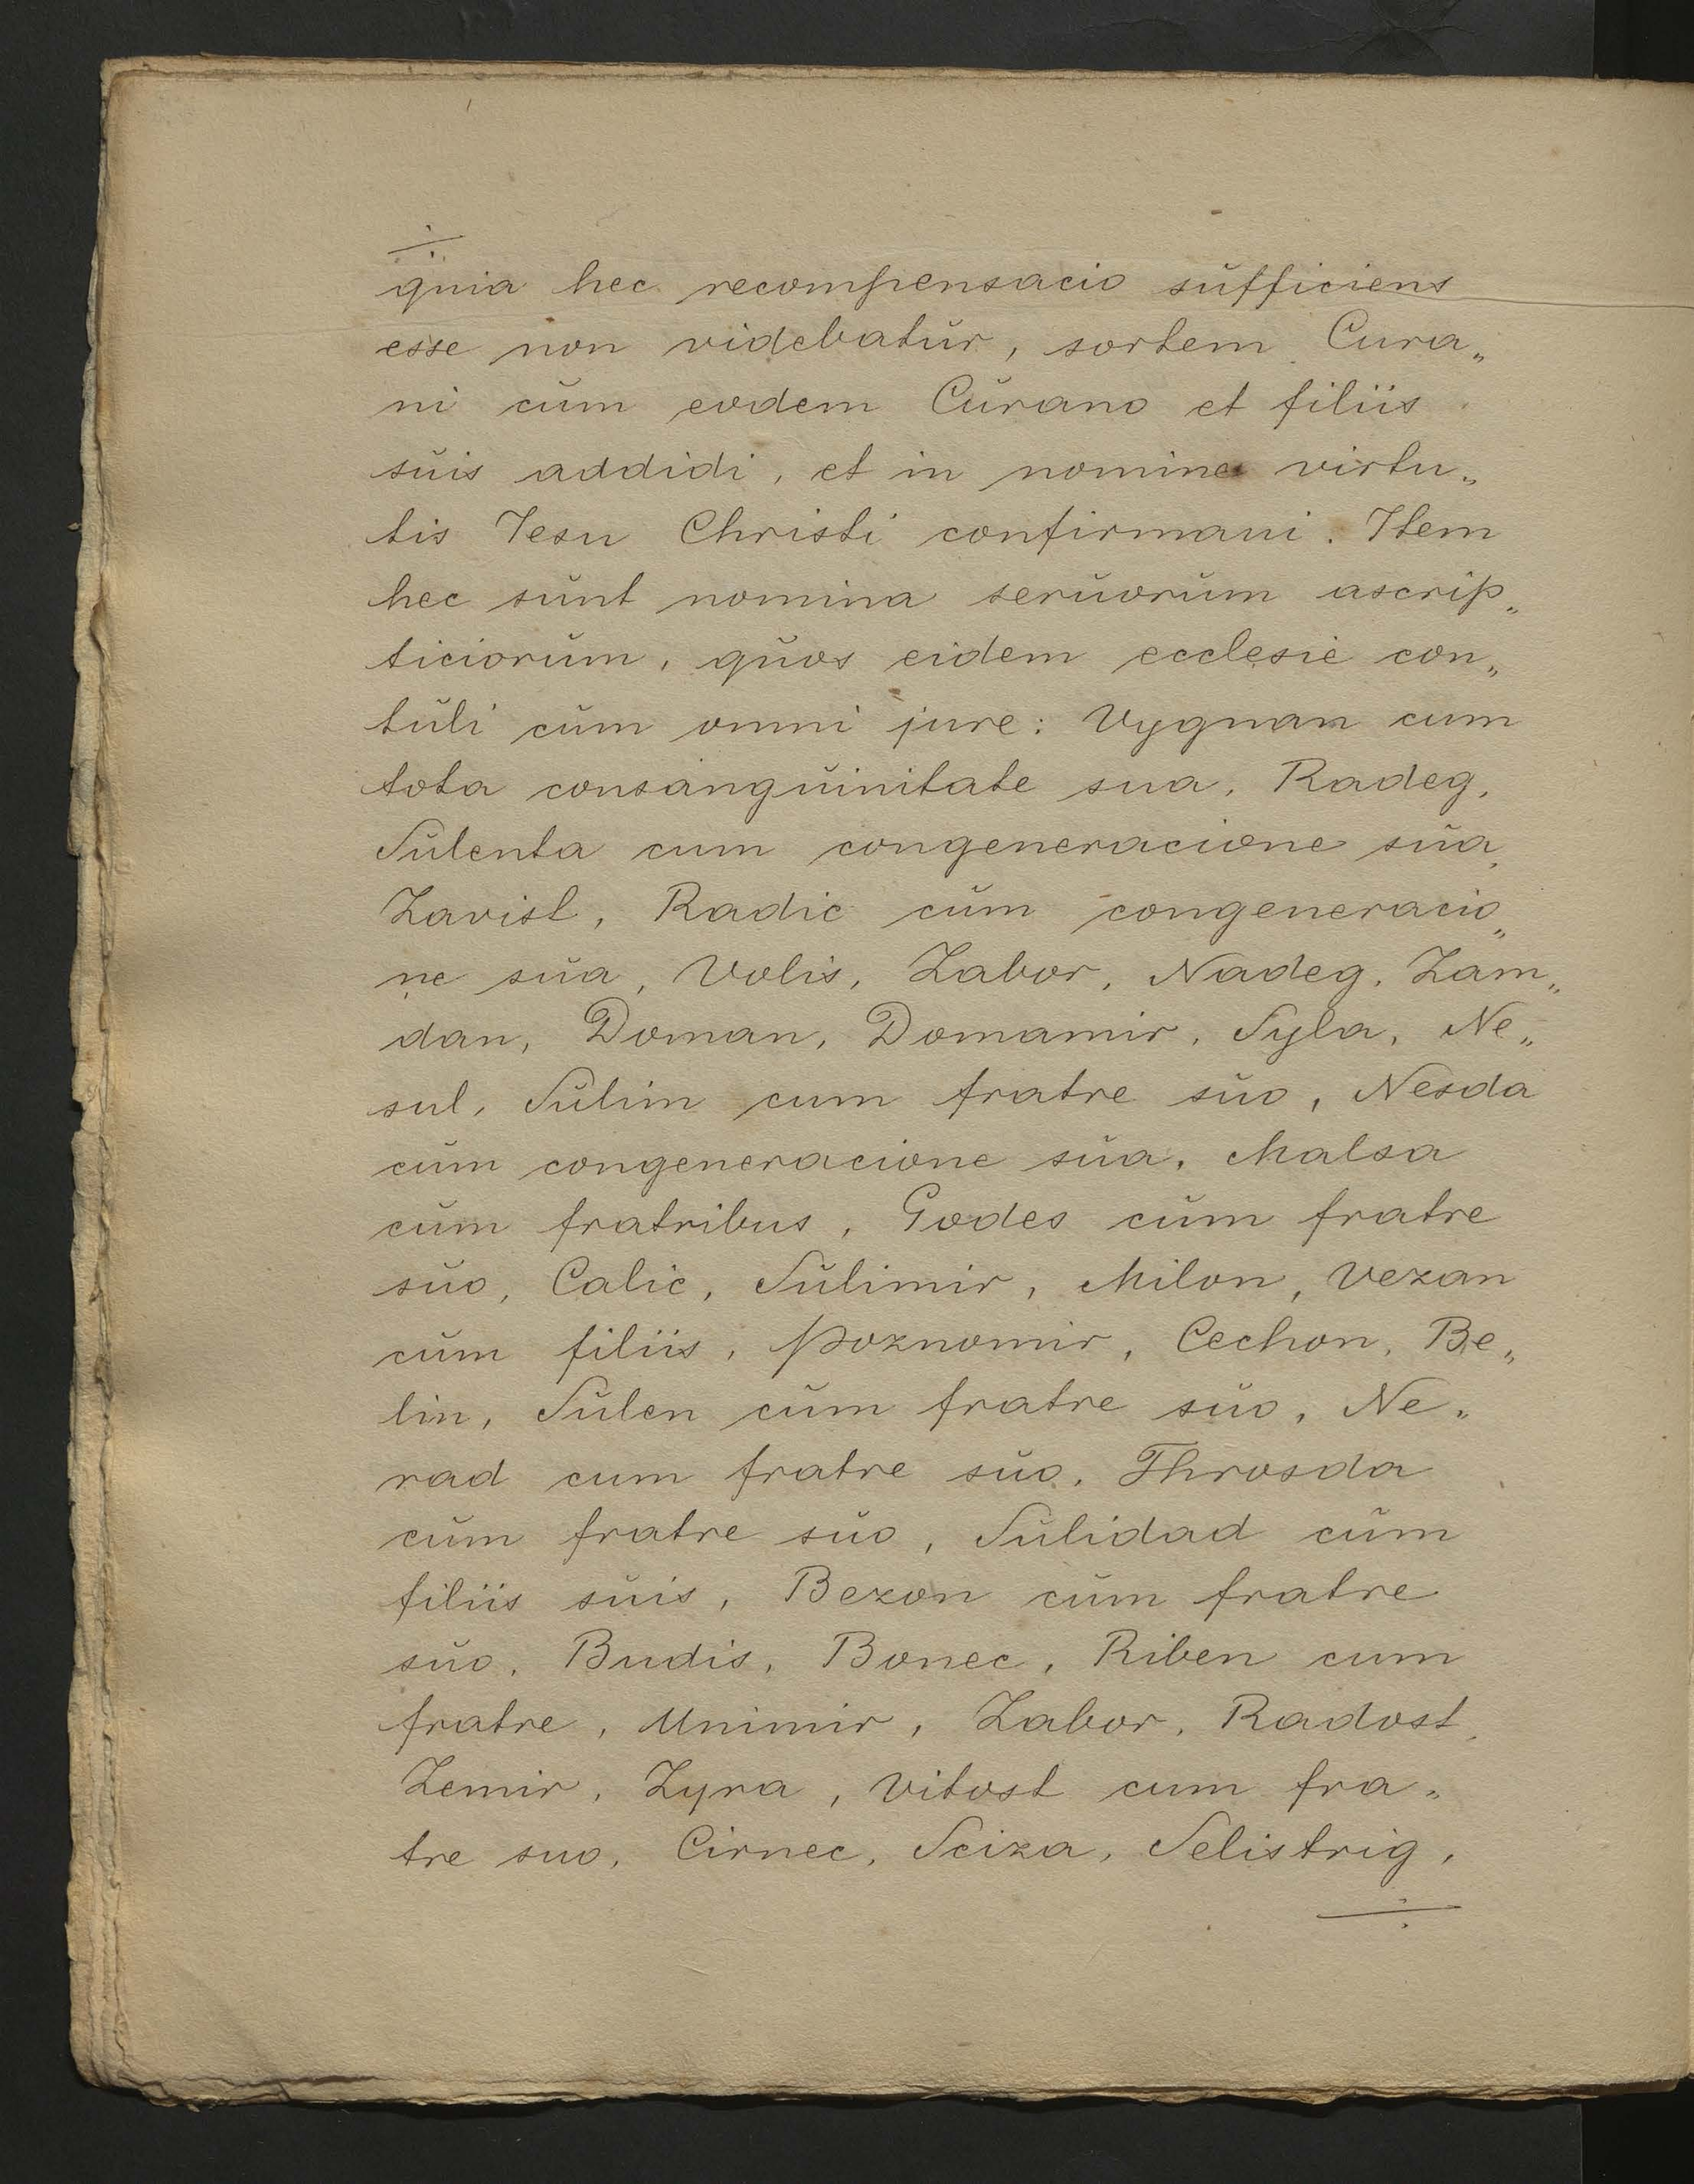 quia hec recompensacio sŭfficiens
esse non videbatŭr, sortem Cura„
ni cŭm eodem Cŭrano et filiis
sŭis addidi, et in nomine virtu„
tis Iesu Christi confirmaui. Item
hec sŭnt nomina serŭorŭm ascrip„
ticiorŭm, qŭos eidem ecclesie con„
tŭli cŭm omni jure: Vygnan cum
tota consangŭinitate sua, Radeg,
Sŭlenta cum congeneracione sŭa,
Zavist, Radic cŭm congeneracio„
ne sŭa, Volis, Zabor, Nadeg, Zam„
dan, Doman, Domamir, Syla, Ne„
sul, Sŭlim cum fratre sŭo, Nesda
cŭm congeneracione sŭa, Malsa
cŭm fratribus, Godes cŭm fratre
sŭo, Calic, Sŭlimir, Milon, Vezan
cŭm filiis, Poznomir, Cechon, Be„
lin, Sŭlen cŭm fratre sŭo, Ne„
rad cum fratre sŭo, Throsda
cŭm fratre sŭo, Sŭlidad cŭm
filiis sŭis, Bezon cŭm fratre
sŭo, Budis, Bonec, Riben cum
fratre, Unimir, Zabor, Radost,
Zemir, Zyra, Vitost cum fra„
tre suo, Cirnec, Sciza, Selistrig,